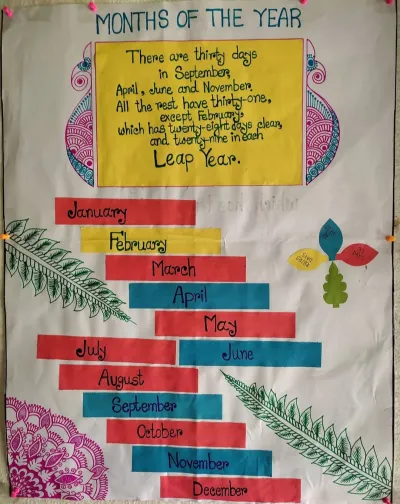 MONTHS OF THE YEAR
There are thirty days
in September,
April, June and November,
All the rest have thirty-one,
except February,
which has twenty-eight days clear,
and twenty-nine in each
Leap Year.
January
February
March
April
May
June
July
August
September
October
November
December